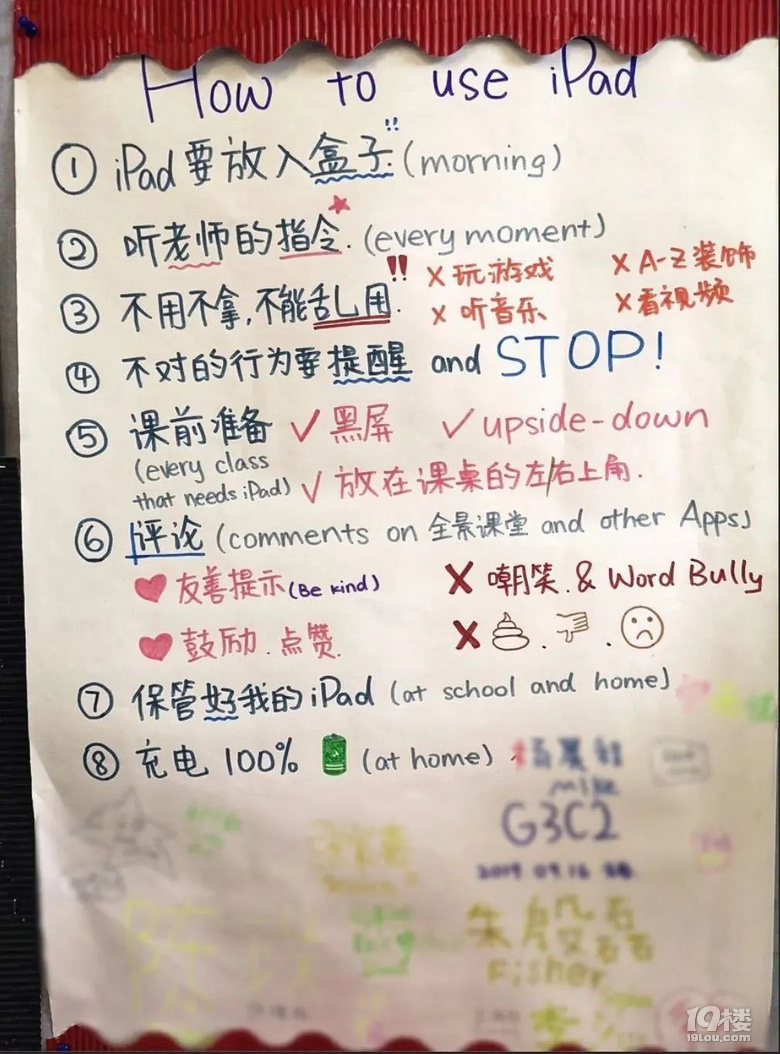 How to use iPad
① iPad要放入盒子.(morning)!!
② 听老师的指令.(every moment)
③ 不用不拿,不能乱用.!!
× 玩游戏 × A-Z装饰
× 听音乐 × 看视频
④ 不对的行为要提醒 and STOP!
⑤ 课前准备 ✓ 黑屏 ✓ upside-down
(every class
that needs iPad) ✓ 放在课桌的左/右上角.
⑥ 评论 (comments on 全景课堂 and other Apps)
友善提示(Be kind) × 嘲笑.& Word Bully
鼓励.点赞. ×
⑦ 保管好我的iPad (at school and home)
⑧ 充电 100% (at home)
mike
G3C2
2019.09.16
Fisher
19楼
19lou.com